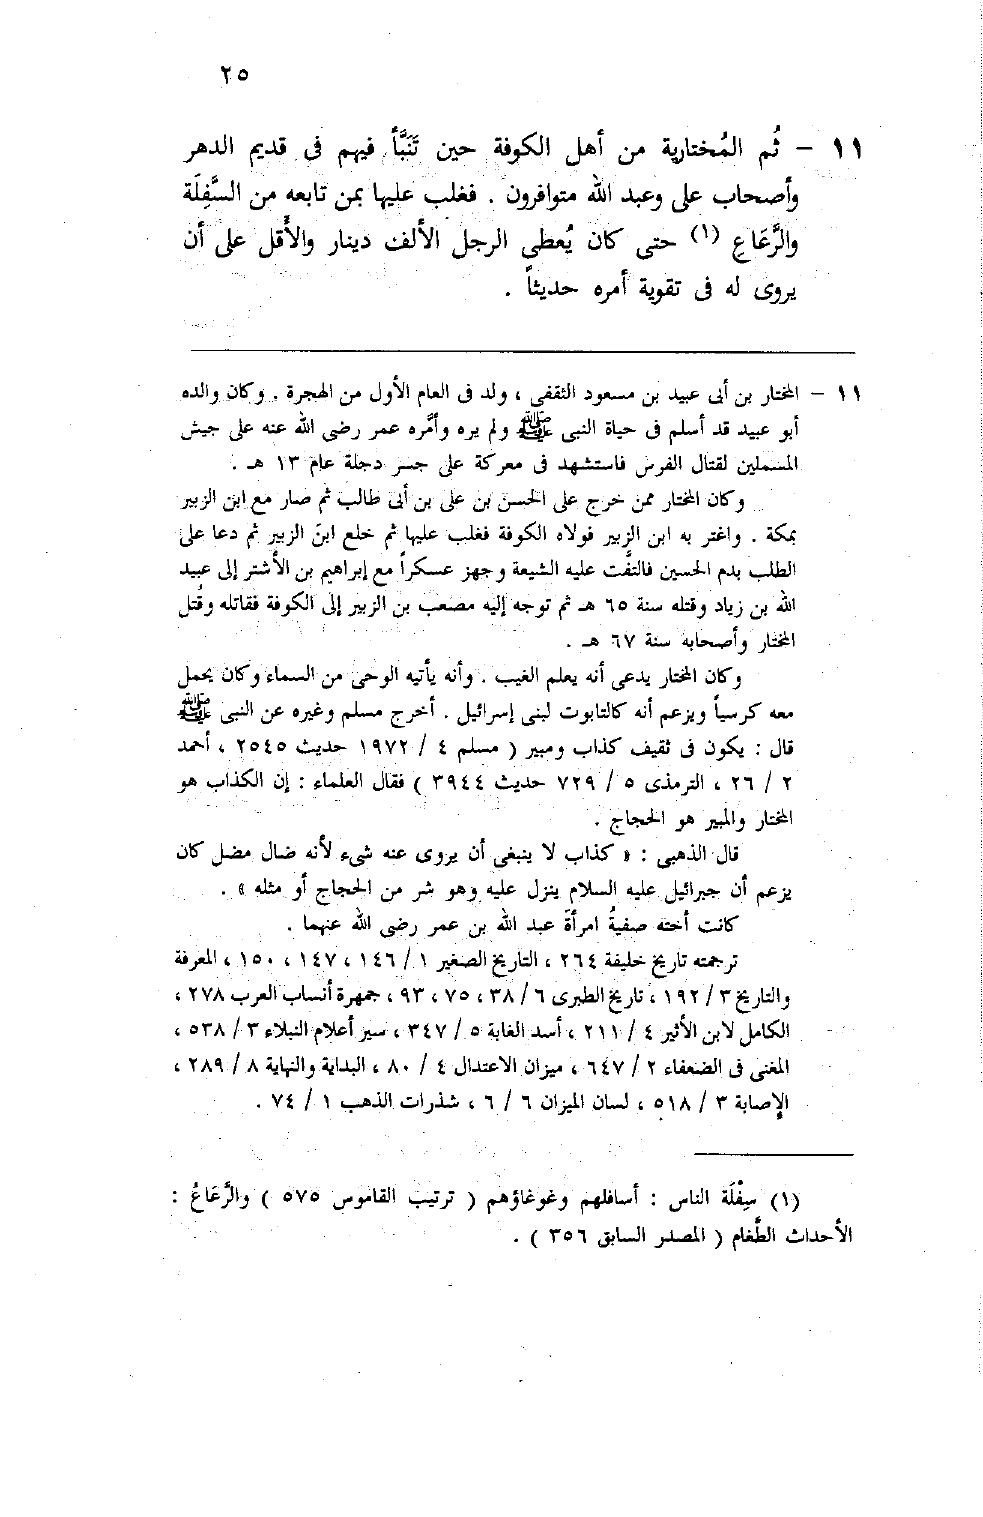 ٢٥
١١ – ثُم المُختارية من أهل الكوفة حين تَنَبَّأ فيهم فى قديم الدهر
وأصحاب على وعبد الله متوافرون . فغلب عليها بمن تابعه من السَّفِلَة
والرَّعَاعِ (١) حتى كان يُعطى الرجل الألف دينار والأَقل على أن
يروى له فى تقوية أمره حديثاً .
١١ – المختار بن أبى عبيد بن مسعود الثقفى ، ولد فى العام الأول من الهجرة . وكان والده
أبو عبيد قد أسلم فى حياة النبى ﷺ ولم يره وأمَّره عمر رضى الله عنه على جيش
المسملين لقتال الفرس فاستشهد فى معركة على جسر دجلة عام ١٣ هـ .
وكان المختار ممن خرج على الحسن بن على بن أبى طالب ثم صار مع ابن الزبير
بمكة . واغتر به ابن الزبير فولاه الكوفة فغلب عليها ثم خلع ابنَ الزبير ثم دعا على
الطلب بدم الحسين فالتفَّت عليه الشيعة وجهز عسكراً مع إبراهيم بن الأشتر إلى عبيد
الله بن زياد وقتله سنة ٦٥ هـ ثم توجه إليه مصعب بن الزبير إلى الكوفة فقاتله وقُتل
المختار وأصحابه سنة ٦٧ هـ .
وكان المختار يدعى أنه يعلم الغيب . وأنه يأتيه الوحى من السماء وكان يحمل
معه كرسياً ويزعم أنه كالتابوت لبنى إسرائيل . أخرج مسلم وغيره عن النبى ﷺ
قال : يكون فى ثقيف كذاب ومبير ( مسلم ٤ / ١٩٧٢ حديث ٢٥٤٥ ، أحمد
٢ / ٢٦ ، الترمذى ٥ / ٧٢٩ حديث ٣٩٤٤ ) فقال العلماء : إن الكذاب هو
المختار والمبير هو الحجاج .
قال الذهبى : « كذاب لا ينبغى أن يروى عنه شىء لأنه ضال مضل كان
يزعم أن جبرائيل عليه السلام ينزل عليه وهو شر من الحجاج أو مثله » .
كانت أخته صفيةُ امرأةَ عبد الله بن عمر رضى الله عنهما .
ترجمته تاريخ خليفة ٢٦٤ ، التاريخ الصغير ١ / ١٤٦ ، ١٤٧ ، ١٥٠ ، المعرفة
والتاريخ ٣ / ١٩٢ ، تاريخ الطبرى ٦ / ٣٨ ، ٧٥ ، ٩٣ ، جمهرة أنساب العرب ٢٧٨ ،
الكامل لابن الأثير ٤ / ٢١١ ، أسد الغابة ٥ / ٣٤٧ ، سير أعلام النبلاء ٣ / ٥٣٨ ،
المغنى فى الضعفاء ٢ / ٦٤٧ ، ميزان الاعتدال ٤ / ٨٠ ، البداية والنهاية ٨ / ٢٨٩ ،
الإصابة ٣ / ٥١٨ ، لسان الميزان ٦ / ٦ ، شذرات الذهب ١ / ٧٤ .
(١) سِفْلَة الناس : أسافلهم وغوغاؤهم ( ترتيب القاموس ٥٧٥ ) والرَّعَاعُ :
الأحداث الطَّغام ( المصدر السابق ٣٥٦ ) .